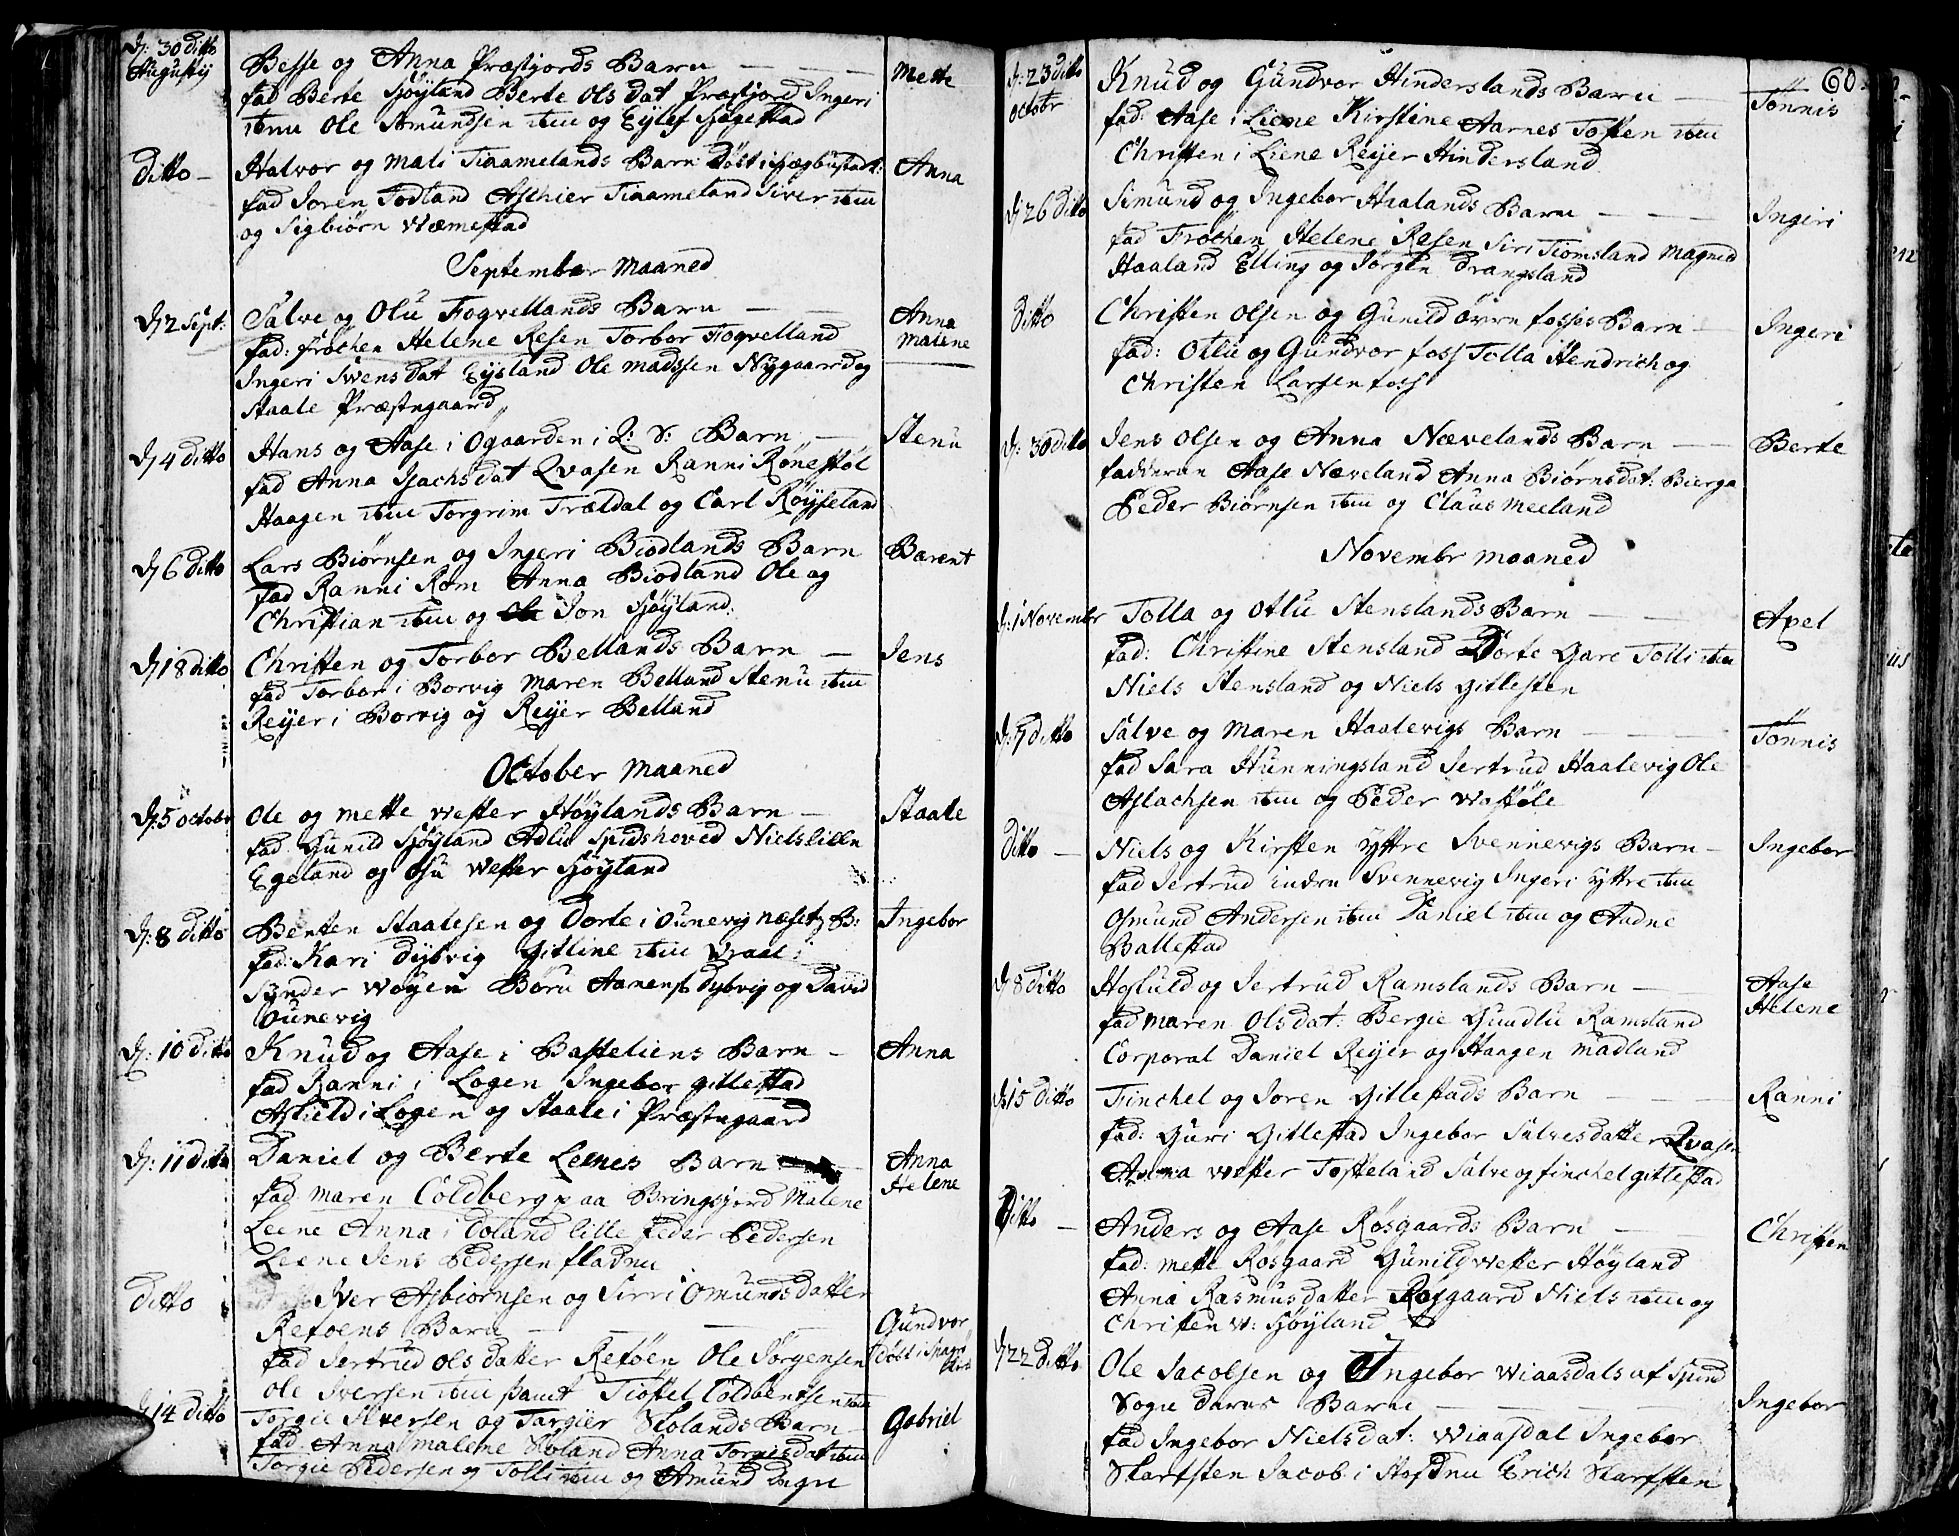 d: 30 ditto
Augustij
Besse og Anna Præstjords Barn
Mette
fad Berte Höyland Berte Olsdat Præstjord Ingeri
item Ole Amundsen item og Eylef Hogestad
ditto
Halvor og Mali Tiaamelands Barn döbt i
Anna
fad Soren Todland Aschier Tiaameland Siver item
og Sigbiørn Wæmestad
September Maaned
d 2 Sept:
Salve og Olu Fogvellands Barn
Anna
Malene
fad: fröchen Helene Resen Torbor Fogvelland
Ingeri Svensdat Eysland Ole Madssen Nygaard og
Staale Præstegaard
d 4 ditto
Hans og Aase i Ogaarden i Q: S: Barn
Stenu
fad Anna Isachsdat Qvasen Ranni Rønestöl
Haagen item Torgrim Trældal og Carl Röysseland
d 6 ditto
Lars Biørnsen og Ingeri Biodlands Barn
Barent
fad Ranni Rom Anna Biodland Ole og
Christian item og Jon Höyland
d 18 ditto
Christen og Torbor Bellands Barn
Jens
fad Torbor i Borvig Maren Belland Stenu item
Reijer i Borvig og Reijer Belland
October Maaned
d: 5 octobr
Ole og Mette Wester Höylands Barn
Staale
fad Gunild Höyland Adlu Spidshoved Niels lille
Egeland og Osu Wester Höyland
d: 8 ditto
Benten Staalesen og Dorte i Ounevig næset B:
Ingebor
fad: Kari Dybvig Gitline item Vraal i
Synder Wøyen Böru Aanensd Dybvig og David
Ounevig
d: 10 ditto
Knud og Aase i Basteliens Barn
Anna
fad Ranni i Logen Ingebor Gitlestad
Asield i Logen og Staale i Præstegaard
d: 11 ditto
Daniel og Berte Leenes Barn
Anna
Helene
fad Maren Coldberg paa Bringsjord Malene
Leene Anna i Doland lille Peder Pedersen
Leene Jens Pedersen fladnu
ditto
Iver Asbiornsen og Sirri Omundsdatter
Refoens Barn
Gundvor
fad Jertrud olsdatter Refoen Ole Jorgensen
Ole Iversen item samt Tiostel Coldbentsen item
d 14 ditto
Torgie Iversen og Targier Skolands Barn
Gabriel
fad Anna Malene Skoland Anna Tornisdat item
Torgie Pedersen og Tolli item og Amund degn
60
d: 23 ditto
octobr
Knud og Gundvor Hinderslands Barn
Tönnis
fad: Aase i Liene Kirstine Aarnes Tosten item
Christen i Liene Reijer Hindersland
d: 26 ditto
Simund og Ingebor Haalands Barn
Ingeri
fad Fröchen Helene Resen Siri Tiomsland Magned
Haaland Elling og Jörgen Drangsland
ditto
Christen Olsen og Gunild övre fosses Barn
Ingeri
fad: Otlu og Gundvor foss Tolla Hendrich og
Christen Larssen foss
d: 30 ditto
Jens Olsen og Anna Nævelands Barn
Berte
fadderne Aase Næveland Anna Biørnsdat: Bierga
Peder Biørnsen item og Claus Meeland
Novembr Maaned
d: 1 Novembr
Tolla og Otlu Stenslands Barn
Axel
fad: Christine Stensland Dorte Gare Tolli item
Niels Stensland og Niels Gitlesten
d: 7 ditto
Salve og Maren Haalevigs Barn
Tönnis
fad Sara Hunningsland Jertrud Haalevig Ole
Aslachsen item og Peder Waststöle
ditto
Niels og Kirsten yttre Svennevigs Barn
Ingebor
fad Jertrud indre Svennevig Ingeri yttre item
Osmund Andersen item Daniel item og Aadne
Ballestad
d 8 ditto
Hosuld og Jertrud Ramslands Barn
Aase
Helene
fad Maren Olsdat: Bergie Gundlu Ramsland
Corporal Daniel Reijer og Haagen Madland
d: 15 ditto
Finchel og Joren Gitlestads Barn
Ranni
fad: Guri Gitlestad Ingebor Salvesdatter Qvasen
Anna wester Tosteland Salve og finchel gitlestad
Ditto
Anders og Aase Rosgaards Barn
Christen
fad: Mette Rosgaard Gunild Wester Höyland
Anna Rasmusdatter Rosgaard Niels item og
Christen W: Höyland
d 22 ditto
Ole Jacobsen og Ingebor Wiaasdals af Spind
Sogn deres Barn
Ingebor
fad Ingebor Nielsdat: Wiaasdal Ingebor
Skarfsten Jacob i Hafdnu Erich Skarfsten